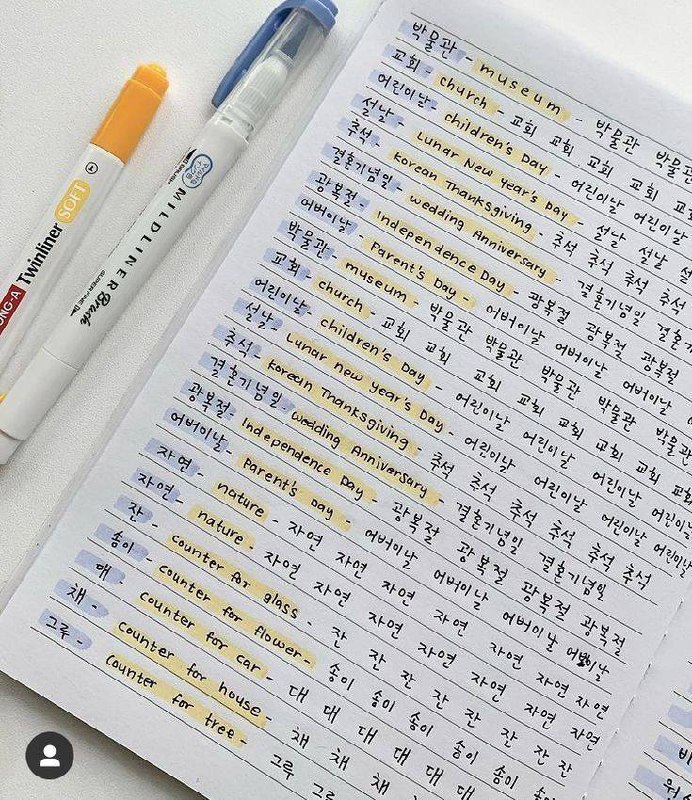 DONG-A Twinliner SOFT
MILDLINER Brush
박물관 - museum - 박물관 박물관
교회 - church - 교회 교회 교회 교회 교회
어린이날 - children's Day - 어린이날 어린이날
설날 - Lunar New year's Day - 설날 설날 설
추석 - Korean Thanksgiving - 추석 추석 추석 추석
결혼기념일 - wedding Anniversary - 결혼기념일 결혼기
광복절 - Independence Day - 광복절 광복절 광복절
어버이날 - Parent's Day - 어버이날 어버이날 어버이날
박물관 - museum - 박물관 박물관 박물관 박물관 박물관
교회 - church - 교회 교회 교회 교회 교회 교회 교회
어린이날 - children's Day - 어린이날 어린이날 어린이날 어린이날
설날 - Lunar new year's Day - 어린이날 어린이날 어린이날 어린이날
추석 - Korean Thanksgiving - 추석 추석 추석 추석 추석 추석
결혼기념일 - wedding Anniversary - 결혼기념일 결혼기념일
광복절 - Independence Day - 광복절 광복절 광복절 광복절
어버이날 - Parent's Day - 어버이날 어버이날 어버이날 어버이날
자연 - nature - 자연 자연 자연 자연 자연 자연
자연 - nature - 자연 자연 자연 자연 자연 자연
잔 - counter for glass - 잔 잔 잔 잔 잔 잔 잔
송이 - counter for flower - 송이 송이 송이 송이 송이 송
대 - counter for car - 대 대 대 대 대 대 대
채 - counter for house - 채 채 채
그루 - counter for tree - 그루 그루